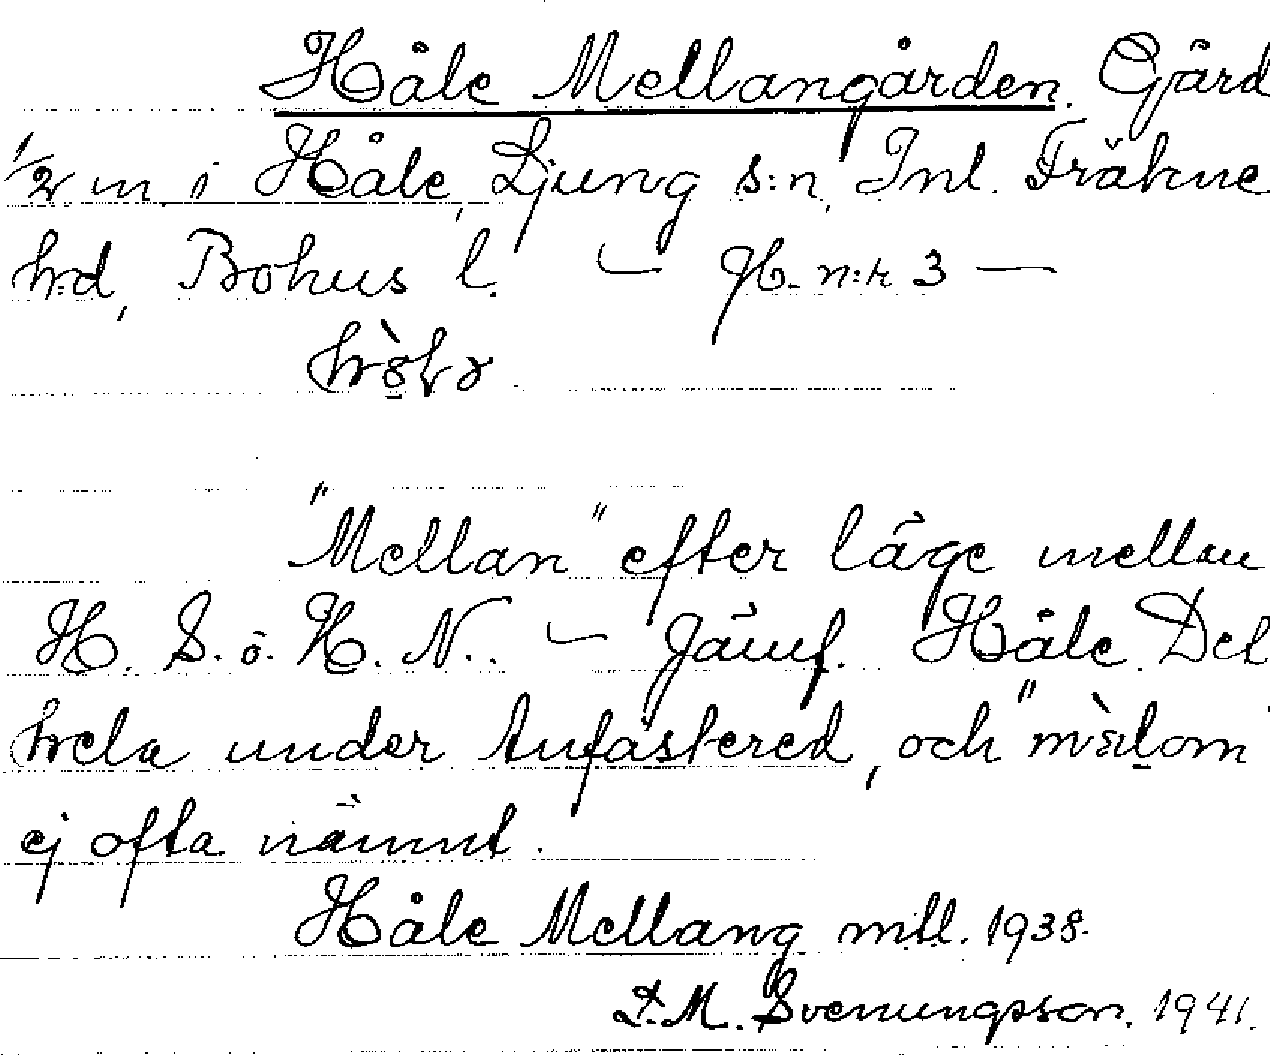 Håle Mellangården. Gård
1/2 m. i Håle, Ljung s:n, Inl. Fräkne
h:d, Bohus l. — n:r 3 —
"Mellan" efter läge mellan
H. S. o. H. N.. — Jämf. Håle. Det
hela under Anfastered, och
ej ofta nämnt.
Håle Mellang mtl. 1938.
D. M. Svenungsson. 1941.